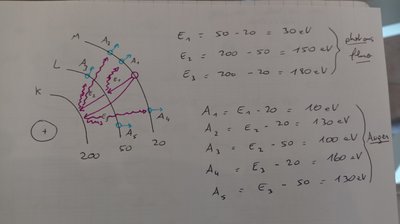 M
L
K
A3
A2
A1
E1
E2
E3
A4
A5
+
200 50 20
E1 = 50 - 20 = 30 eV
E2 = 200 - 50 = 150 eV
E3 = 200 - 20 = 180 eV
photons
fluo
A1 = E1 - 20 = 10 eV
A2 = E2 - 20 = 130 eV
A3 = E2 - 50 = 100 eV
A4 = E3 - 20 = 160 eV
A5 = E3 - 50 = 130 eV
Auger